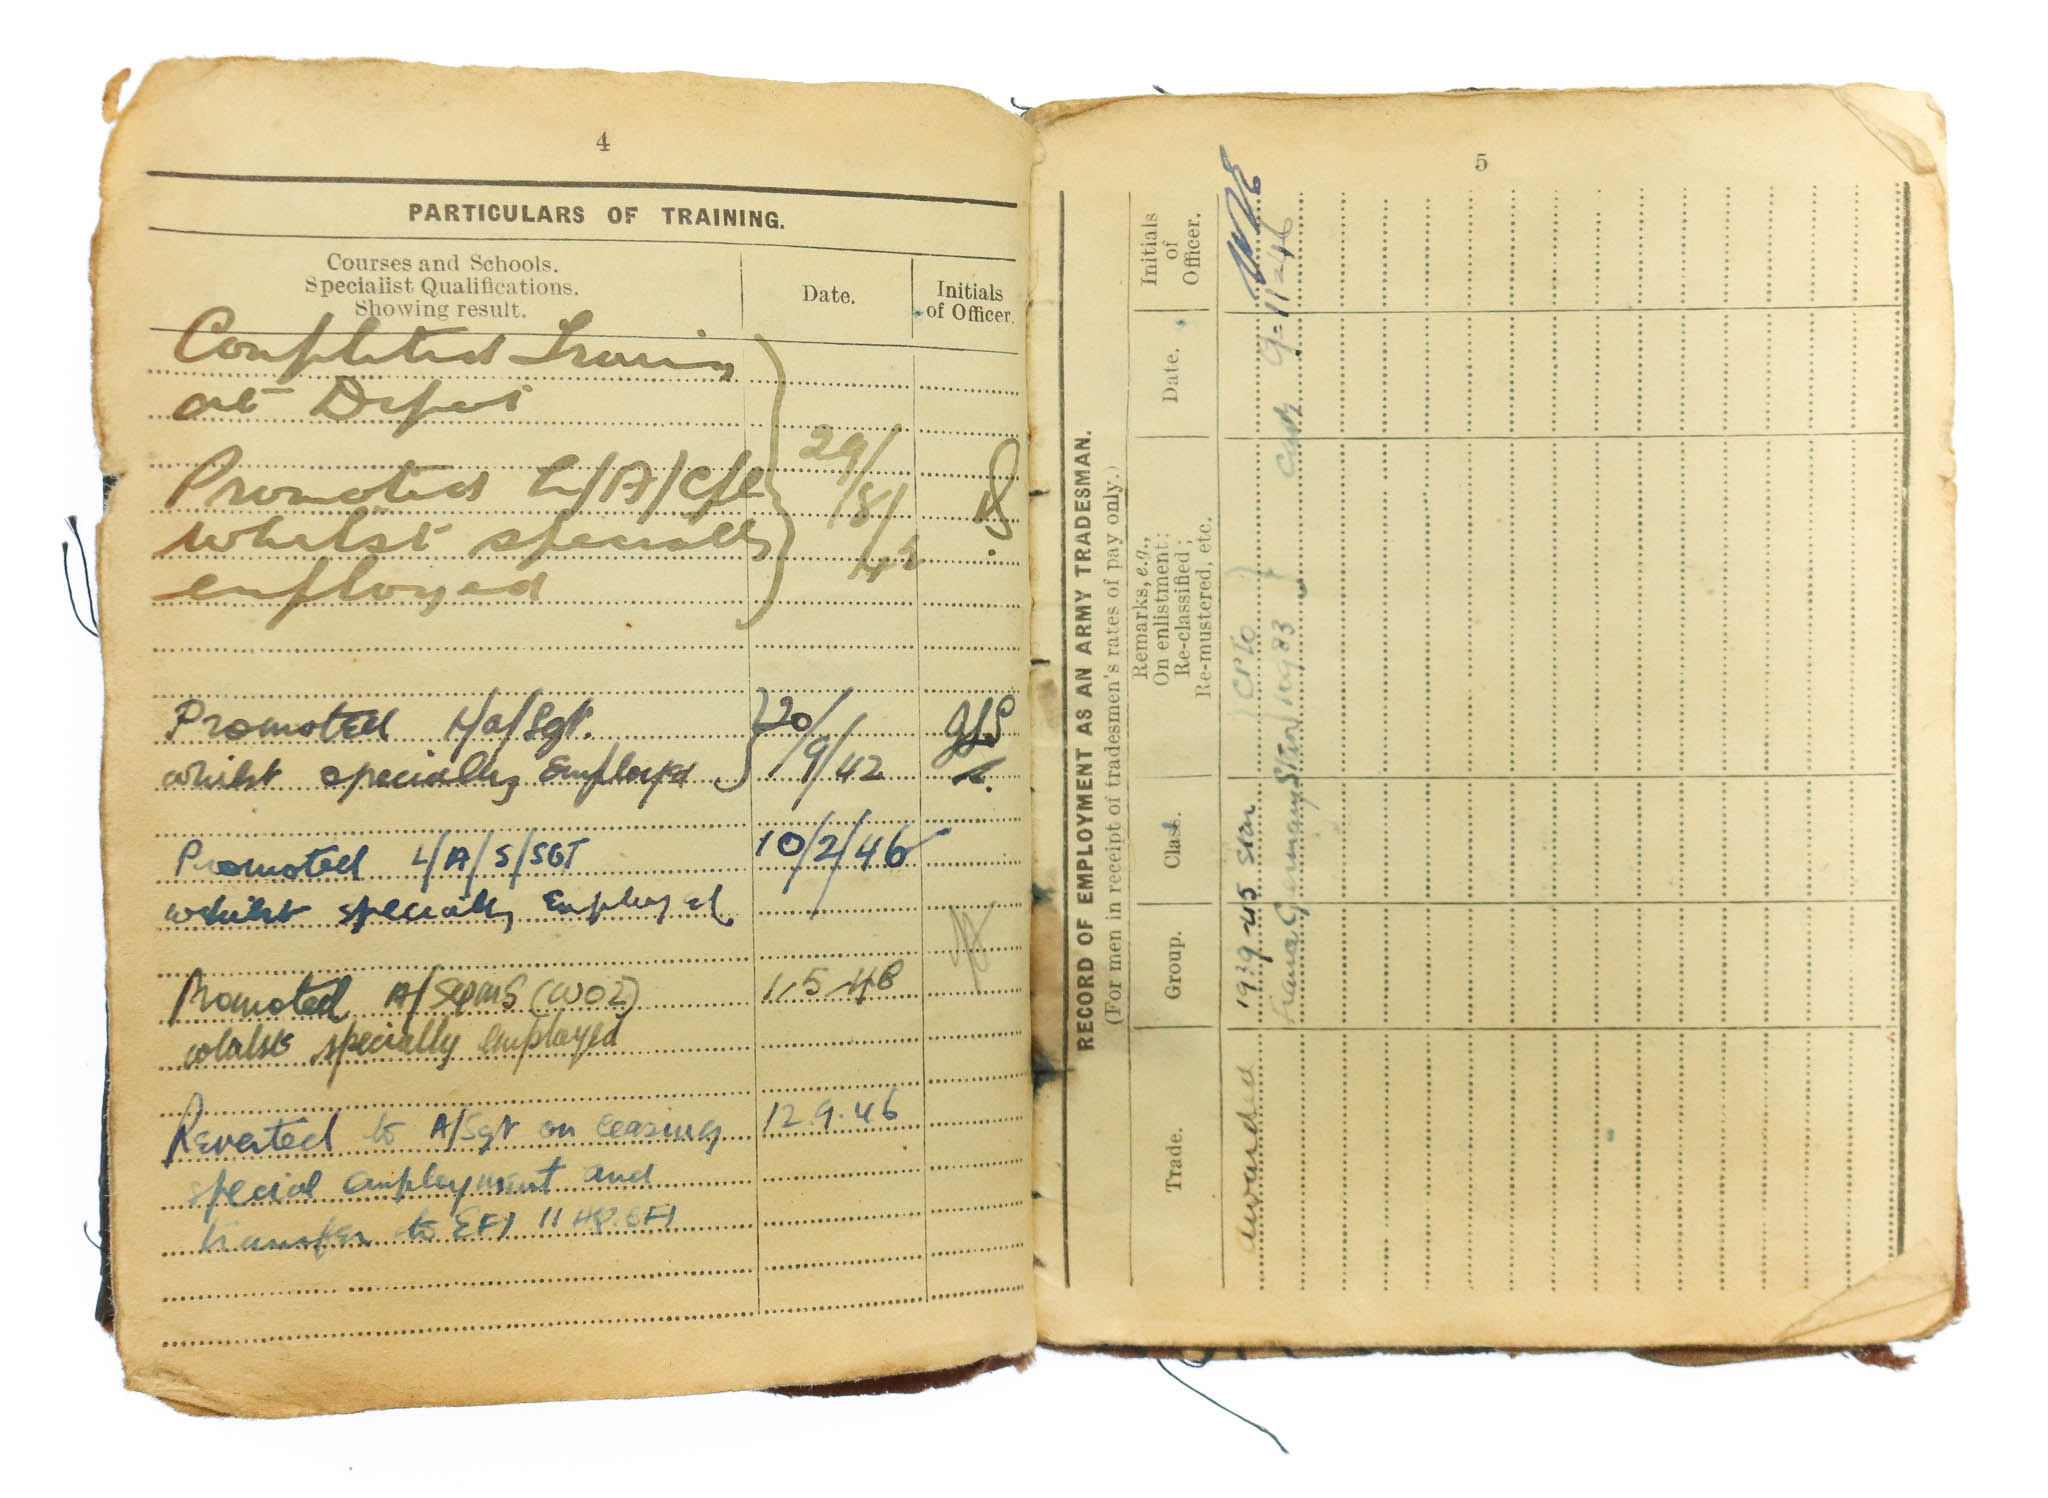 4
PARTICULARS OF TRAINING.
Courses and Schools.
Specialist Qualifications.
Showing result.
Date.
Initials
of Officer.
Completed Training
at Depot
Promoted L/A/Cpl
whilst specially
employed
29/
/8/
42
Promoted L/a/Sgt.
whilst specially Employed
20/
/9/42
Promoted L/A/S/SGT
10/2/46
whilst specially Employed
Promoted A/SQMS (WO2)
1.5.46
whilst specially employed
Reverted to A/Sgt on ceasing
12.9.46
special employment and
transfer to EFI 11 HQ. EFI
5
RECORD OF EMPLOYMENT AS AN ARMY TRADESMAN.
(For men in receipt of tradesmen's rates of pay only.)
Trade.
Group.
Class.
Remarks, e.g.,
On enlistment;
Re-classified;
Re-mustered, etc.
Date.
Initials
of
Officer.
awarded 1939-45 Star
Germany Star
9-11-46